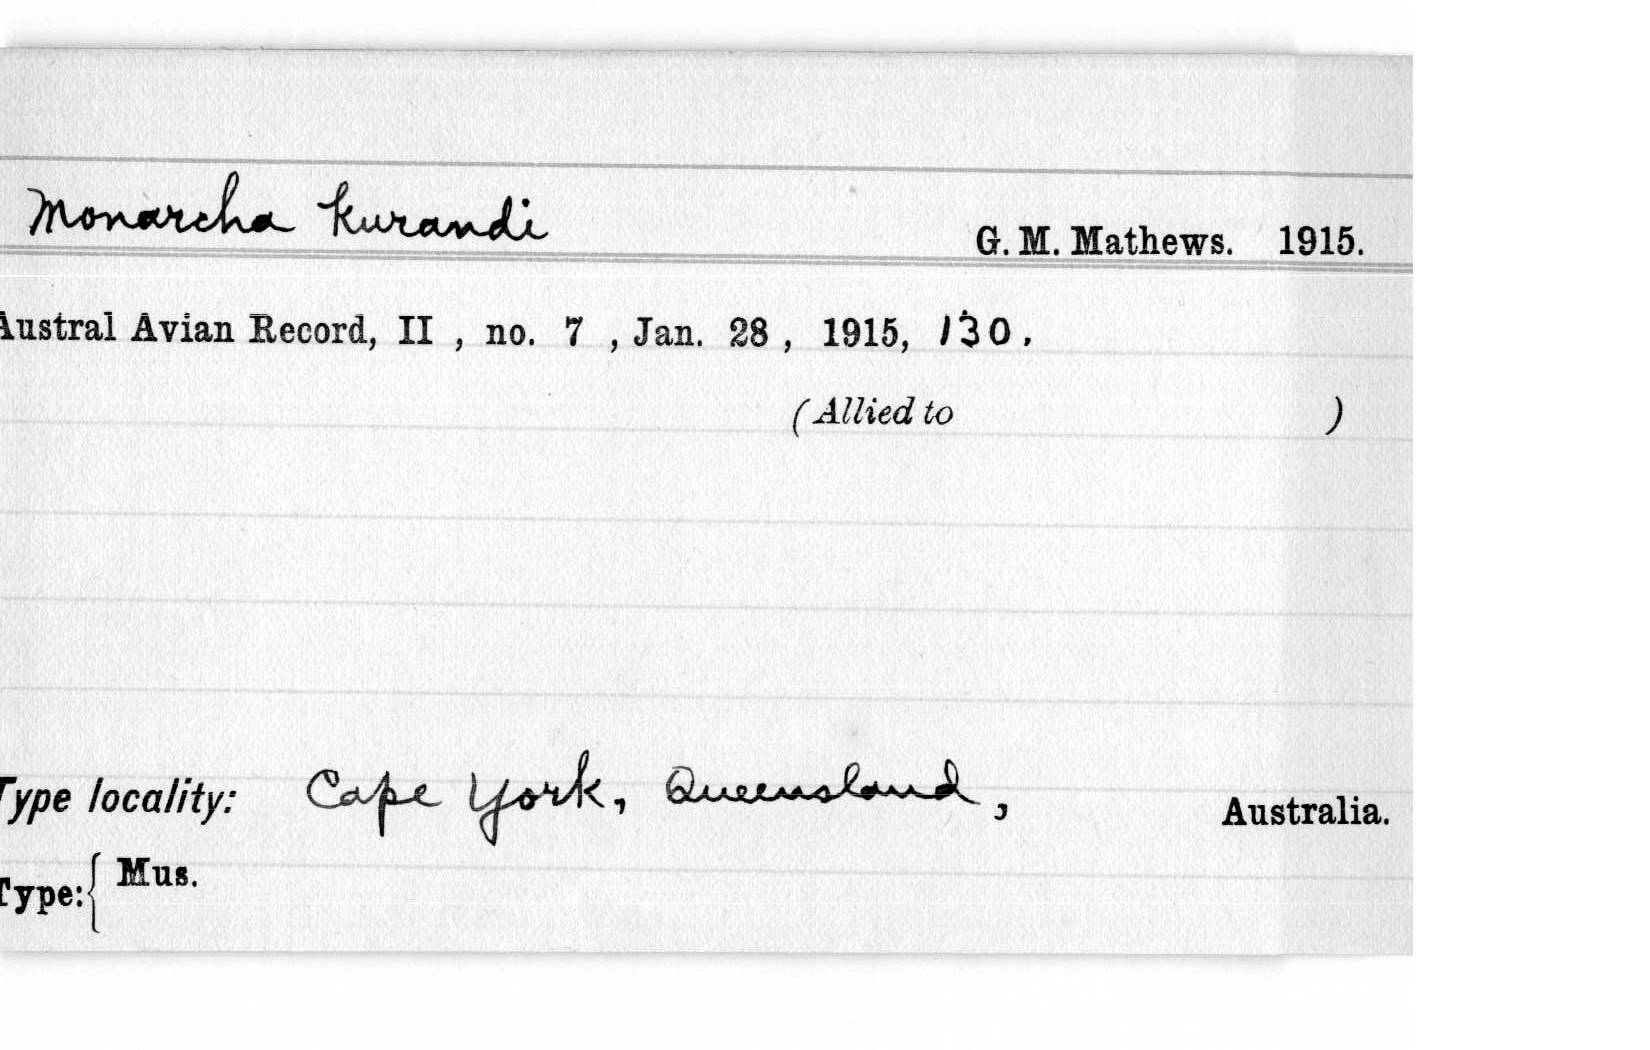 Monarcha kurandi
G. M. Mathews. 1915.
Austral Avian Record, II , no. 7 , Jan. 28 , 1915, 130.
(Allied to )
Type locality: Cape York, Queensland, Australia.
Type: { Mus.